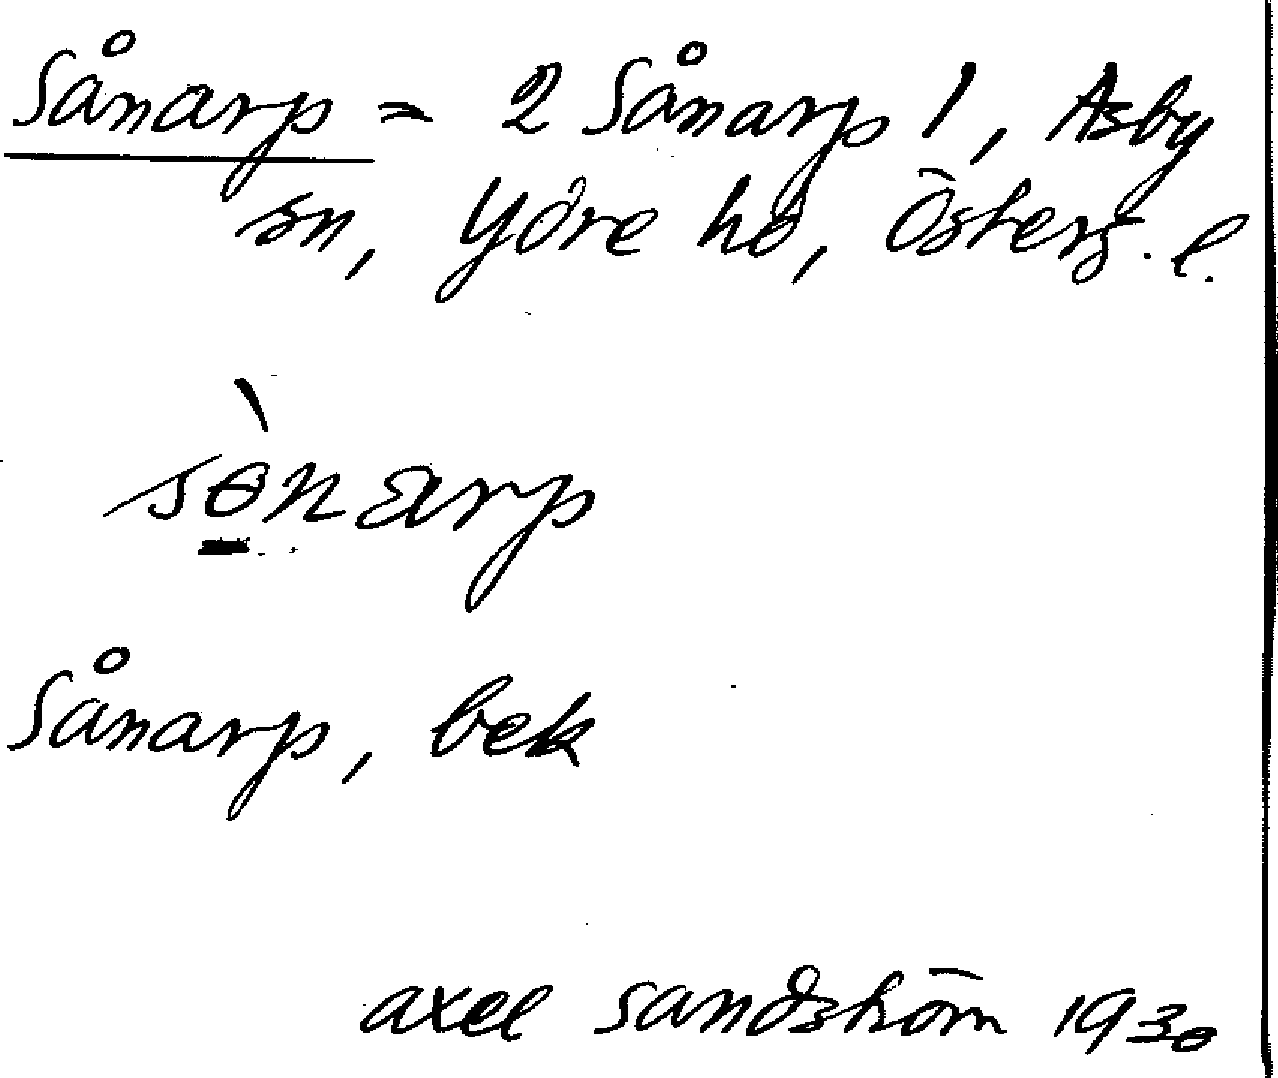 Sånarp = 2 Sånarp 1, Asby
sn, Ydre hd, Österg. l.
sὸnarp
Sånarp, bek
axel sandström 1930